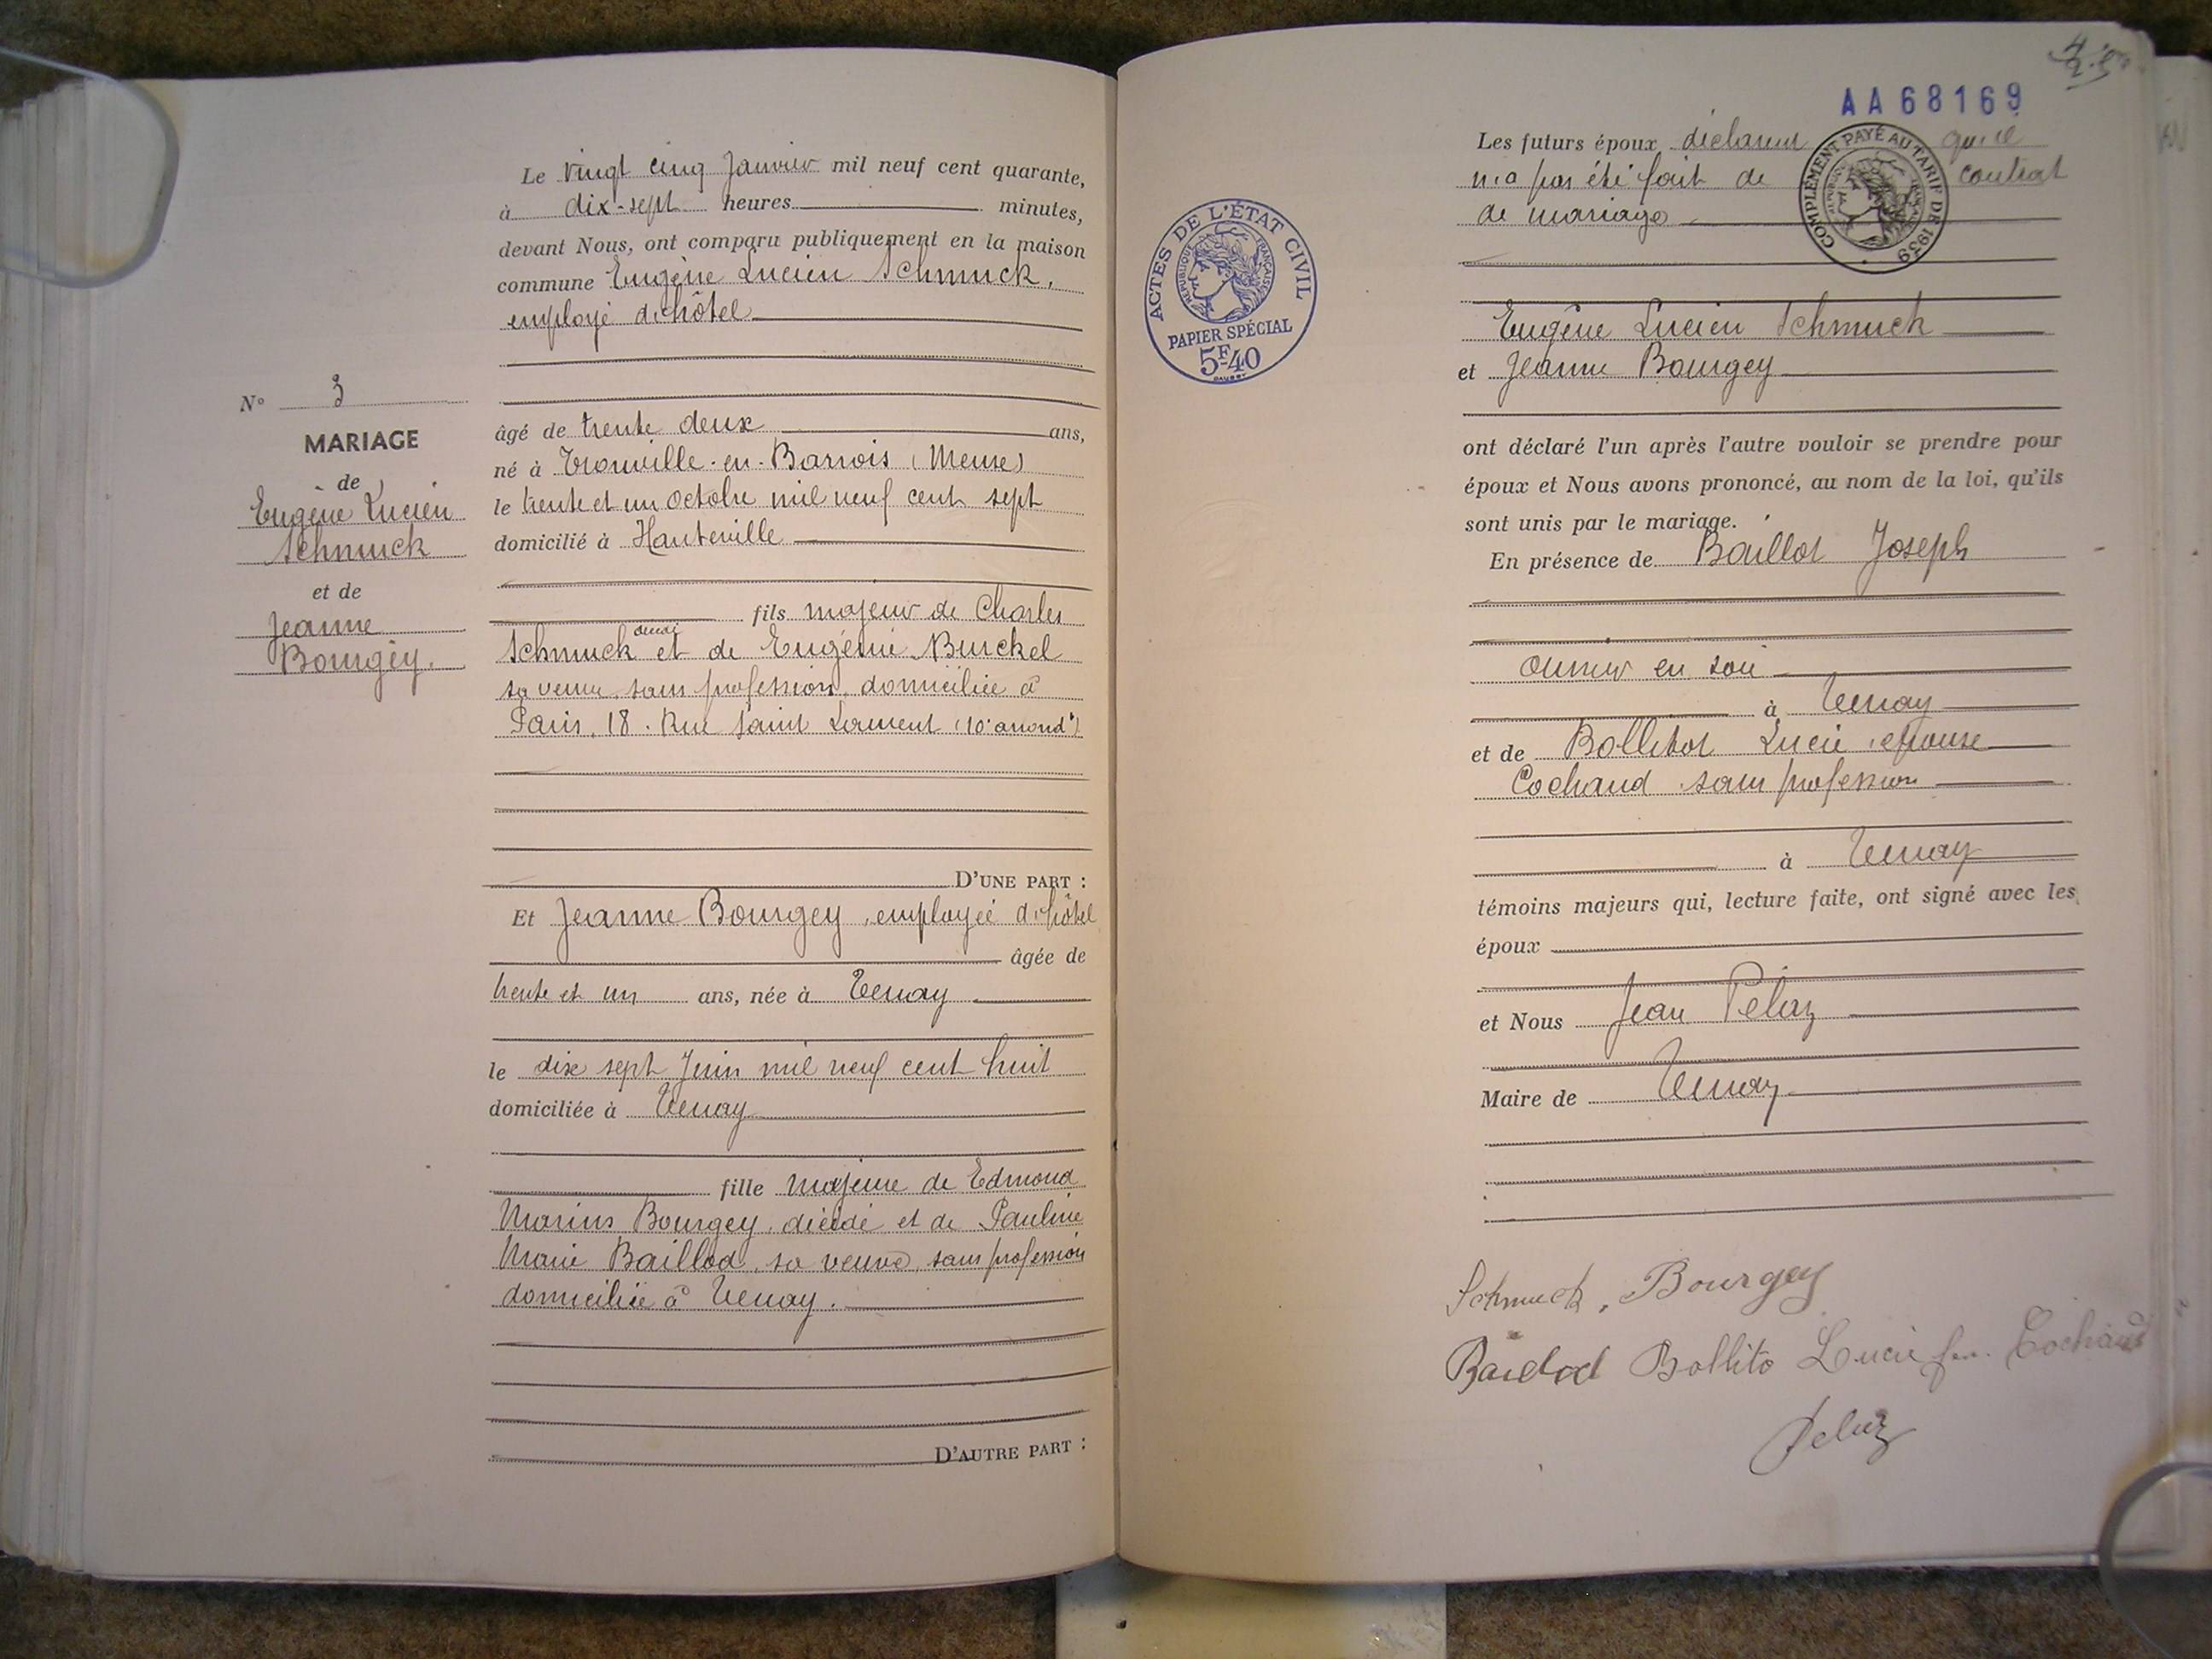 Le vingt cinq Janvier mil neuf cent quarante,
à dix-sept heures minutes,
devant Nous, ont comparu publiquement en la maison
commune Eugène Lucien Schmuck,
employé d'hôtel
N° 3
MARIAGE
de
Eugène Lucien
Schmuck
et de
Jeanne
Bourgey.
âgé de trente deux ans,
né à Tronville-en-Barrois (Meuse)
le trente et un Octobre mil neuf cent sept
domicilié à Hauteville
fils majeur de Charles
Schmuck et de Eugénie Burckel
sa veuve, sans profession, domiciliée à
Paris, 18. Rue Saint Laurent (10e arrondt)
D'UNE PART :
Et Jeanne Bourgey, employée d'hôtel
âgée de
trente et un ans, née à Tenay
le dix sept Juin mil neuf cent huit
domiciliée à Tenay
fille majeure de Edmond
Marius Bourgey, décédé et de Pauline
Marie Baillod, sa veuve, sans profession
domiciliée à Tenay.
D'AUTRE PART :
AA68169
Les futurs époux déclarent qu'il
n'a pas été fait de contrat
de mariage
COMPLÉMENT PAYÉ AU TARIF DE 1939
ACTES DE L'ÉTAT CIVIL
RÉPUBLIQUE FRANÇAISE
PAPIER SPÉCIAL
5F40
Eugène Lucien Schmuck
et Jeanne Bourgey
ont déclaré l'un après l'autre vouloir se prendre pour
époux et Nous avons prononcé, au nom de la loi, qu'ils
sont unis par le mariage.
En présence de Baillot Joseph
ouvrier en soie
à Tenay
et de Bollitot Lucie, épouse
Cochaud sans profession
à Tenay
témoins majeurs qui, lecture faite, ont signé avec les
époux
et Nous Jean Pélaz
Maire de Tenay
Schmuck, Bourgey
Baillod Bollito Lucie fe. Cochaud
Pelaz